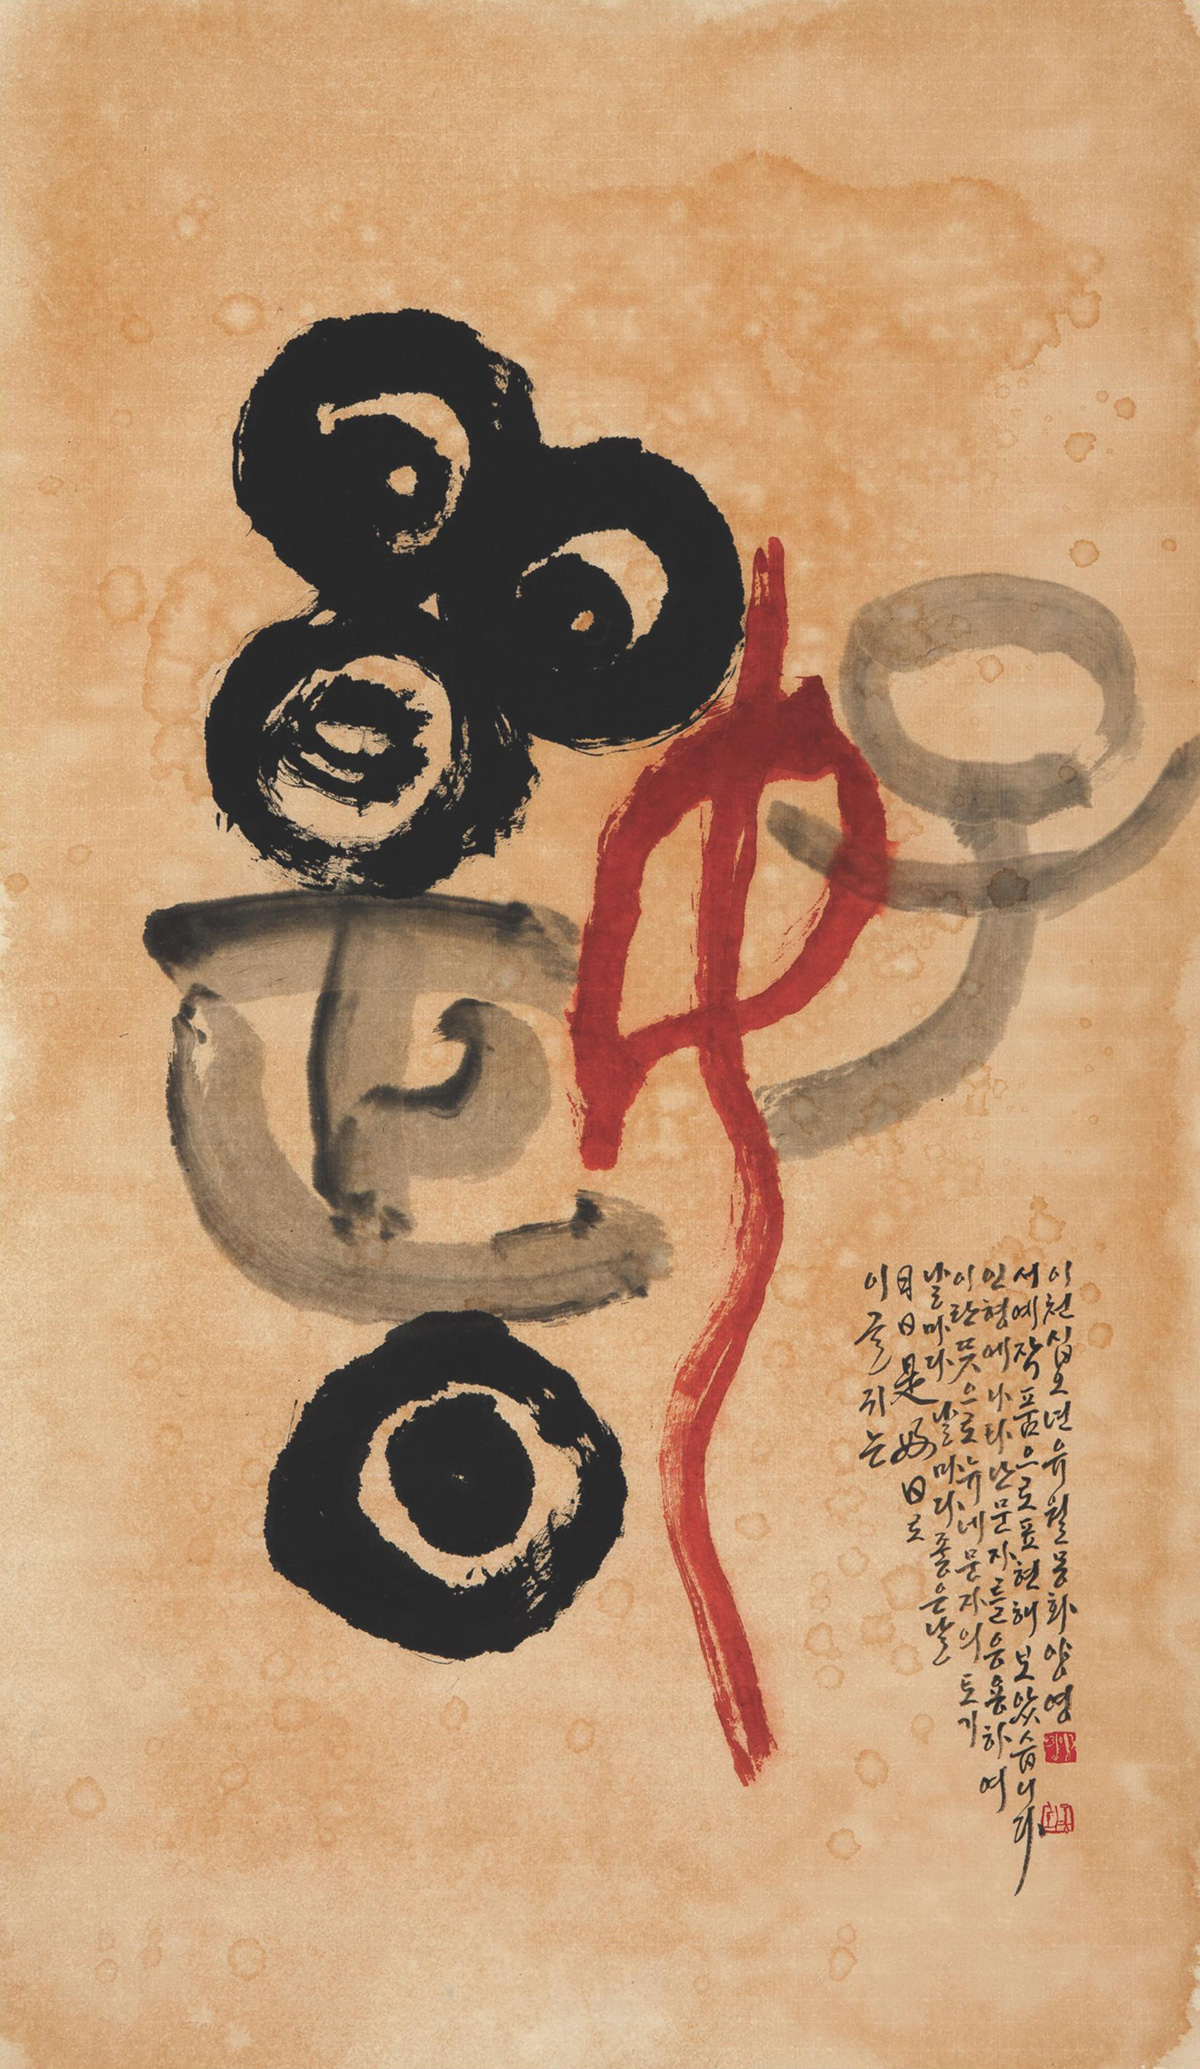 이 글귀는
日日是好日로
날마다 날마다 좋은날
이란 뜻으로 뉴네문자의 토기
인형에 나타난 문자를 응용하여
서예작품으로 표현해 보았습니다
이천십오년 유월 몽화 양영